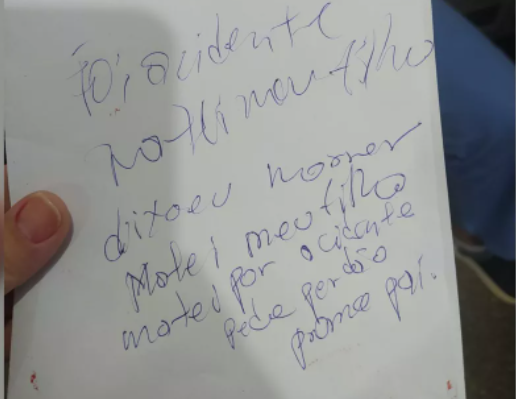 Foi acidente
Matei meu filho
dixoeu morrer
Matei meu filho
matei por acidente
pede perdão
prome pai.